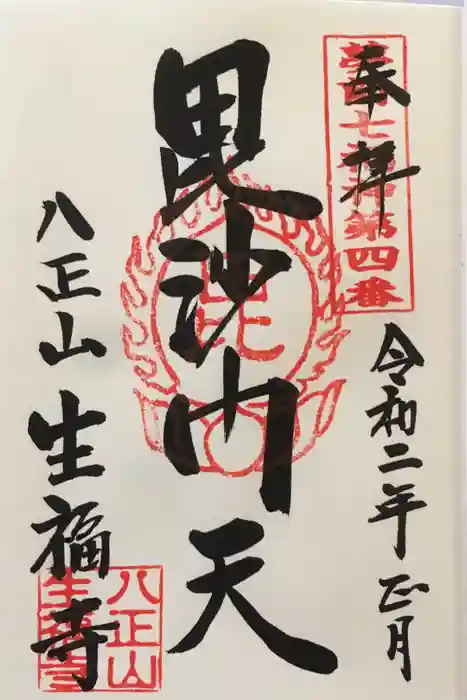 奉拝
七福神第四番
令和二年正月
毘沙門天
毘
八正山生福寺
八正山
生福寺